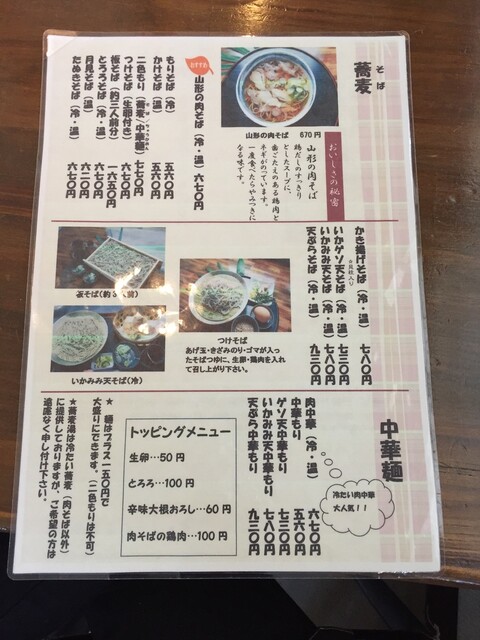 蕎麦
そば
山形の肉そば 670円
おいしさの秘密
山形の肉そば
鶏だしのすっきり
としたスープに、
歯ごたえのある鶏肉と
ネギがのっています。
一度食べたらやみつきに
なる味です。
おすすめ
山形の肉そば（冷・温） 六七〇円
もりそば（冷） 五六〇円
かけそば（温） 五六〇円
二色もり（蕎麦/中華麺） 七七〇円
つけそば（生卵付き） 六七〇円
板そば（約三人前分） 一六五〇円
とろろそば（冷・温） 六七〇円
月見そば（温） 六二〇円
たぬきそば（冷・温） 六七〇円
かき揚げそば（冷・温） 七八〇円
いかゲソ天そば（冷・温） 七三〇円
いかみみ天そば（冷・温） 七八〇円
天ぷらそば（冷・温） 九三〇円
板そば（約3人前）
いかみみ天そば（冷）
つけそば
あげ玉・きざみのり・ゴマが入っ
たそばつゆに、生卵・鶏肉を入れ
て召し上がり下さい。
中華麺
冷たい肉中華
大人気！！
肉中華（冷・温） 六七〇円
中華もり 五六〇円
ゲソ天中華もり 七三〇円
いかみみ天中華もり 七八〇円
天ぷら中華もり 九三〇円
トッピングメニュー
生卵…50円
とろろ…100円
辛味大根おろし…60円
肉そばの鶏肉…100円
★ 麺はプラス一五〇円で
大盛りにできます。（二色もりは不可）
★蕎麦湯は冷たい蕎麦（肉そば以外）
に提供しておりますが、ご希望の方は
遠慮なく申し付け下さい。